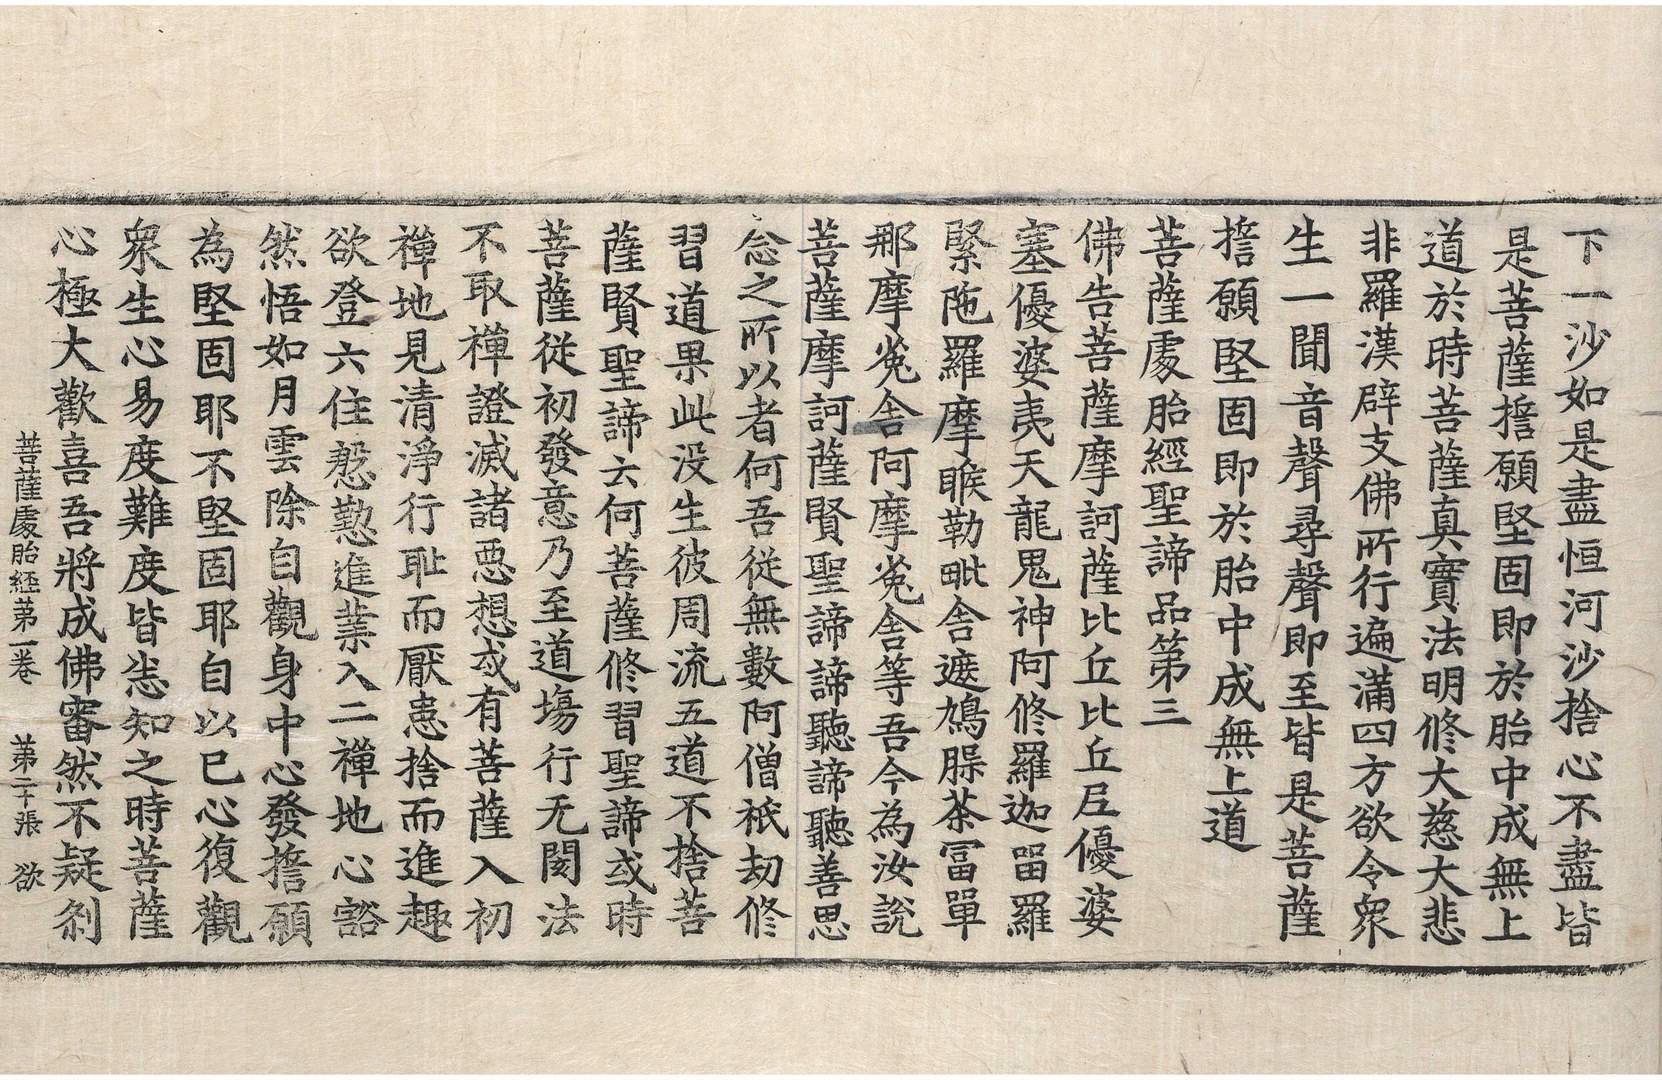 下一沙如是盡恒河沙捨心不盡皆
是菩薩擔願堅固即於胎中成無上
道於時菩薩真實法明修大慈大悲
非羅漢辟支佛所行遍滿四方欲令衆
生一聞音聲尋聲即至皆是菩薩
擔願堅固即於胎中成無上道
菩薩處胎經聖諦品第三
佛告菩薩摩訶薩比丘比丘尼優婆
塞優婆夷天龍鬼神阿修羅迦留羅
緊陁羅摩睺勒毗舍遮鳩腺茶冨單
那摩㝹舍阿摩㝹舍等吾今為汝說
菩薩摩訶薩賢聖諦諦聽諦聽善思
念之所以者何吾從無數阿僧祇劫修
習道果此没生彼周流五道不捨菩
薩賢聖諦云何菩薩修習聖諦或時
菩薩從初發意乃至道場行无閡法
不取禅證滅諸惡想或有菩薩入初
禅地見清淨行耻而厭患捨而進趣
欲登六住慇懃進業入二禅地心豁
然悟如月雲除自觀身中心發擔願
為堅固耶不堅固耶自以已心復觀
衆生心易度難度皆悉知之時菩薩
心極大歡喜吾將成佛審然不疑剎
菩薩處胎經第一卷 第二十張 欲